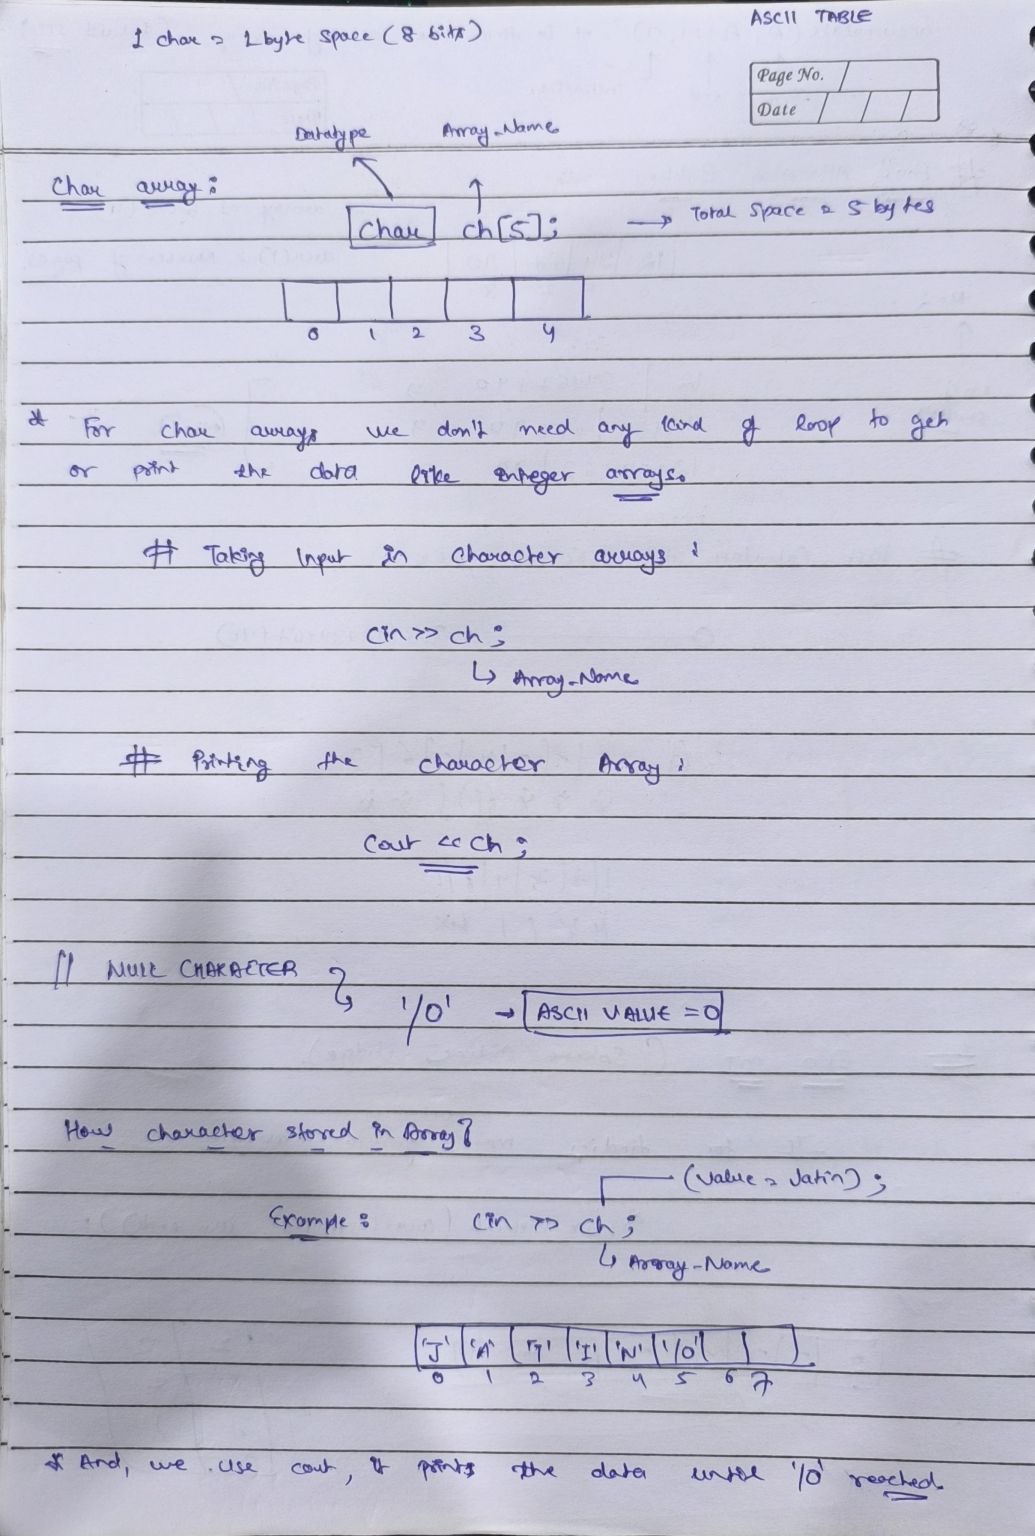 ASCII TABLE
1 char = 1 byte space (8 bits)
Page No.
Date
Datatype Array_Name
Char array:
Char ch[5]; → Total Space = 5 bytes
0 1 2 3 4
* For char arrays we don't need any kind of loop to get
or print the data like integer arrays.
# Taking Input in Character arrays :
cin >> ch ;
↳ Array_Name
# Printing the character Array :
Cout << ch ;
// NULL CHARACTER
'/0' → ASCII VALUE = 0
How character stored in Array?
(Value = Jatin) ;
Example : cin >> ch ;
↳ Array-Name
'J' 'A' 'T' 'I' 'N' '/0'
0 1 2 3 4 5 6 7
* And, we use cout, it prints the data until '/0' reached.